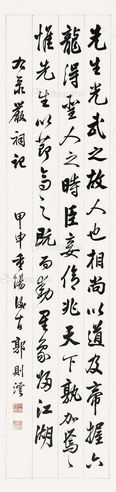 先生光武之故人也相尚以道及帝握六
龍得聖人之時臣妾億兆天下孰加焉
惟先生以節高之既而動星象歸江湖
嚴祠記 甲申重陽 郭則澐